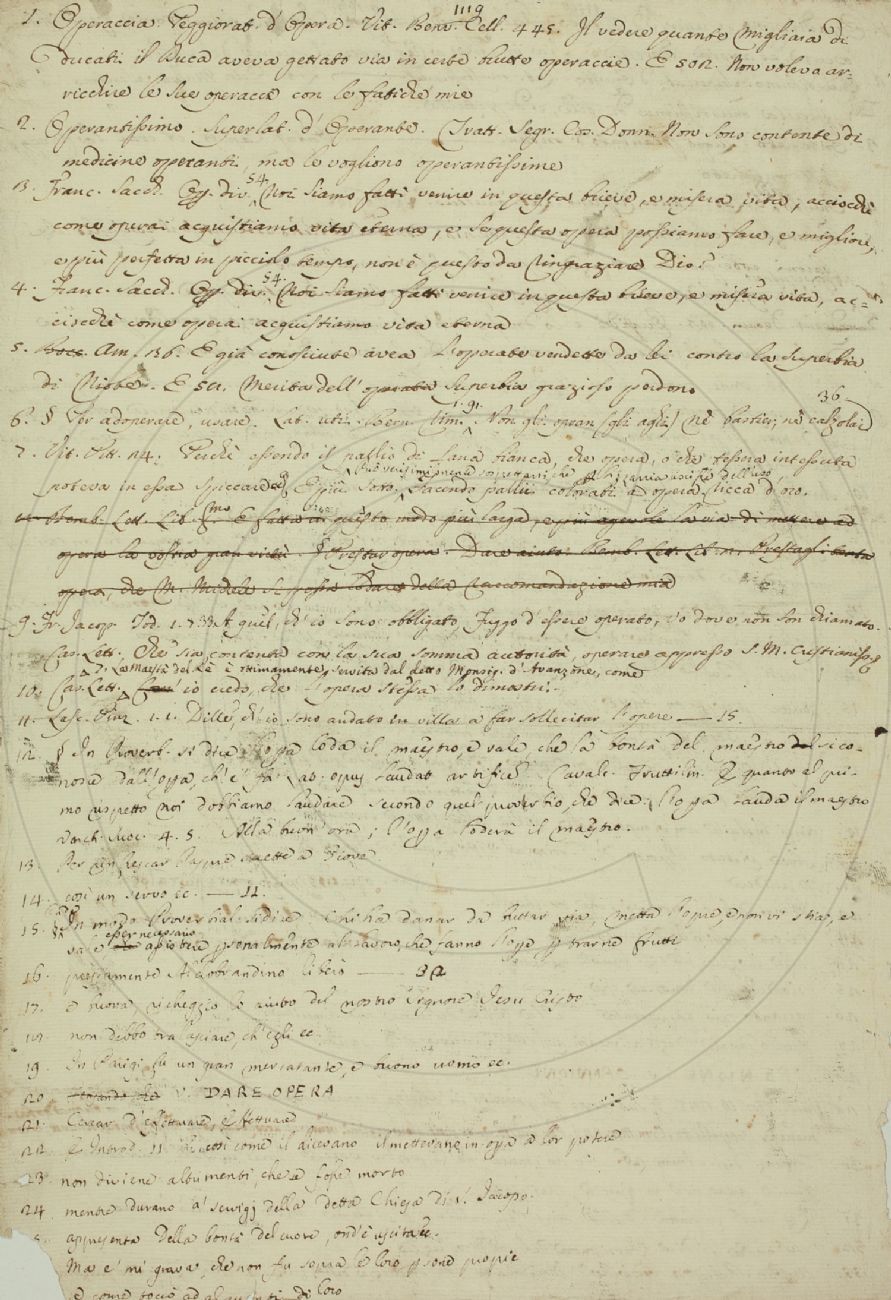 1119
1. Operaccia. Peggiorat. d'Opera. Vit. Benv. Cell. 445. Il vedere quante migliaia di
ducati il Duca aveva gettato via in certe brutte operaccie. E 502. Non voleva ar-
ricchire le sue operacce con le fatiche mie
2. Operantissimo. Superlat. d'Operante. Tratt. Segr. Cos. Donn. Non sono contente di
medicine operanti, ma le vogliono operantissime
3. Franc. Sacch. Op. div. 54. Noi siamo fatti venire in questa brieve, e misera vita, acciocchè
come operai acquistiamo vita eterna, e se questa opera possiamo fare, e migliore,
e più perfetta in piccolo tempo, non è questo da ringraziare Dio?
4. Franc. Sacch. Op. div. 54. Noi siamo fatti venire in questa brieve, e misera vita, ac-
ciocchè come operai acquistiamo vita eterna
5. Bocc. Am. 136. E già conosciute avea l'operate vendette da lei contro la superbia
di Niobe. E 51. Merita dell'operata superbia grazioso perdono
6. § Per adoperare, usare. Lat. uti. Bern. rim. 1. 91. Non gli opran (gli agli) nè barbier, nè calzolai 36
7. Vit. Pitt. 24. Perchè essendo il pallio di lana bianca, che opera, o che tessera intessuta
poteva in essa spiccare E più sotto. Facendo pallii colorati ad opera ricca d'oro.
Bemb. Lett. E fatto in questo modo più larga, e più agevole la via di mettere ad
opera la vostra gran virtù. § Prestar opera. Dare aiuto. Bemb. Lett. Prestagli tanta
opera, che M. Michele si possa lodare della raccomandazione mia
9. Fr. Jacop. Tod. A quel, ch'io sono obbligato, Fuggo d'essere operato, V'o dove non son chiamato.
Car. Lett. Che sia contenta con la sua somma autorità, operare appresso S. M. Cristianiss.
La Maestà del Rè è ottimamente servita dal detto Monsig. d'Avanzone, come
10. Car. Lett. io credo, che l'opera stessa lo dimostri.
11. Lasc. Pinz. 1. 1. Dille, ch'io sono andato in villa a far sollecitar l'opere — 15.
12. § In Proverb. si dice l'opa loda il maestro, e vale, che la bontà del maestro si co-
nosce dall'opa, ch'e' fa. Lat. opus laudat artificem. Cavalc. Frutt. lin. E quanto al pri-
mo rispetto noi dobbiamo laudare secondo quel proverbio, che dice: l'opa lauda il maestro
Varch. Suoc. 4. 5. Alla buon'ora; l'opa loderà il maestro.
13. Per rinfrescar l'aspre saette a Giove
14. così un servo ec. — 11.
15. § In modo Proverbial. si dice: Chi ha danar da buttar via, metta l'opre, e non vi stia, e
vale esser necessario assistere psonalmente al lavoro, che fanno l'opre p trarne frutti
16. prestamente Aldobrandino liberò — 32
17. e nuova richeggio lo aiuto del nostro Signore Jesu Cristo
18. non debbo tralasciare, ch'egli ec.
19. In Parigi fu un gran mercatante, e buono uomo ec.
20. V. DARE OPERA
21. Cercar d'effettuare, effettuare
22. E Introd. 11 E così come il dicevano il mettevano in opa a lor potere
23. non diviene altrimenti, che a l'ope morto
24. mentre durano a' servigj della detta Chiesa di S. Jacopo.
appresenta della bontà del cuore, ond'è uscita ec.
Ma e' mi grava, che non fu sopra le loro psone proprie
e come tocca ad alquanti di loro